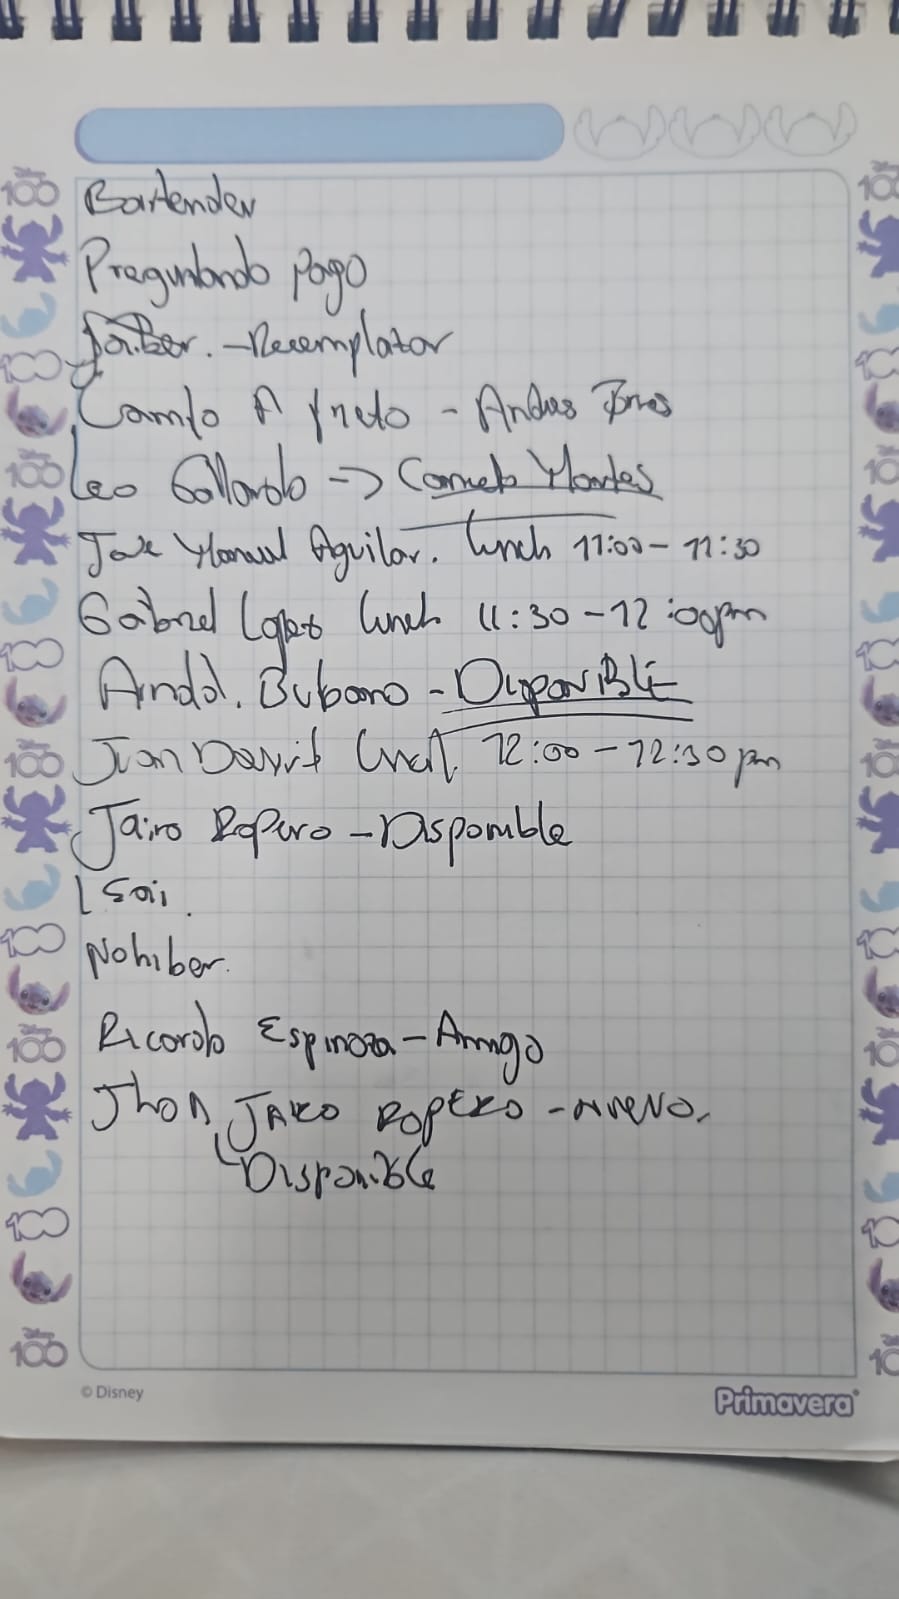 Bartender
Preguntando pago
- Reemplazar
Camilo A Prieto - Andres
Leo Gallardo -> Camilo Montes
Jose Manuel Aguilar. lunch 11:00 - 11:30
Gabriel Lopez lunch 11:30 - 12:00pm
Bubano - Disponible
Juan David lunch 12:00 - 12:30 pm
Jairo Ropero - Disponible
Isai.
Nohiber.
Ricardo Espinoza - Amigo
Jhon Jairo Ropero - nuevo.
Disponible
© Disney
Primavera